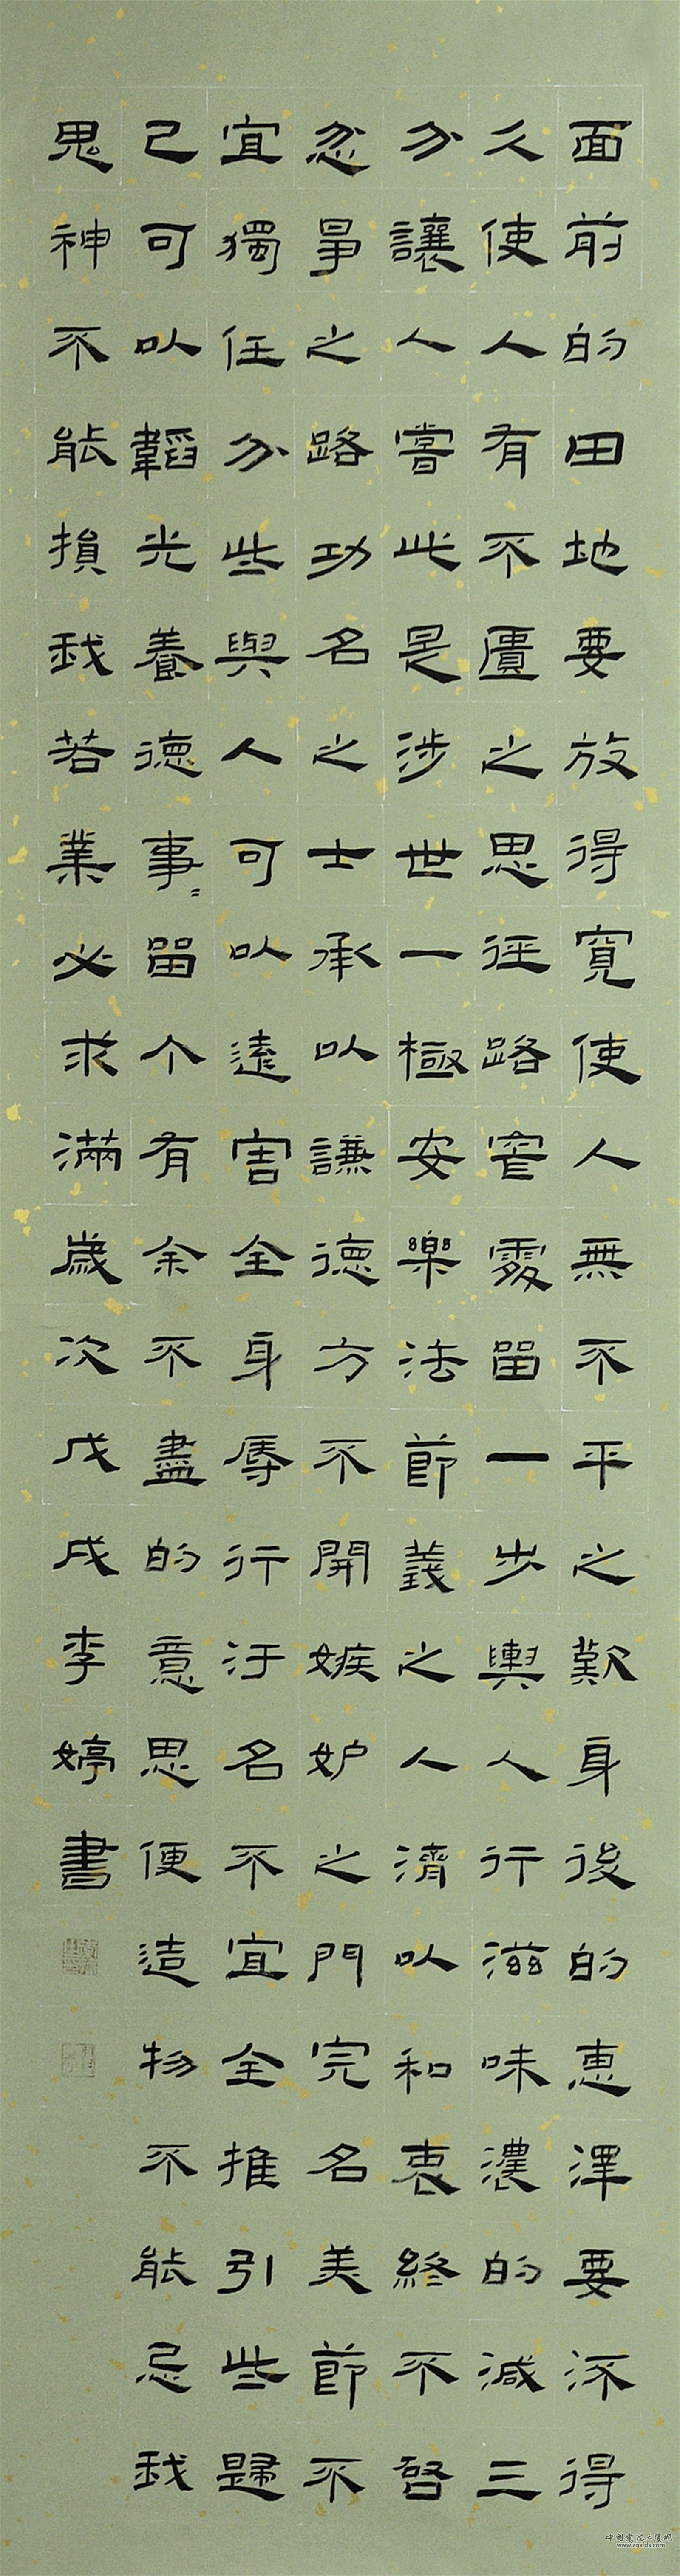 面前的田地要放得寬使人無不平之歎身後的惠澤要流得
久使人有不匱之思徑路窄處留一步與人行滋味濃的減三
分讓人嘗此是涉世一極安樂法節義之人濟以和衷終不啓
忿爭之路功名之士承以謙德方不開嫉妒之門完名美節不
宜獨任分些與人可以遠害全身辱行汙名不宜全推引些歸
己可以韜光養德事〻留个有余不盡的意思便造物不能忌我
鬼神不能損我若業必求滿歲次戊戌李婷書
www.zgsfds.com